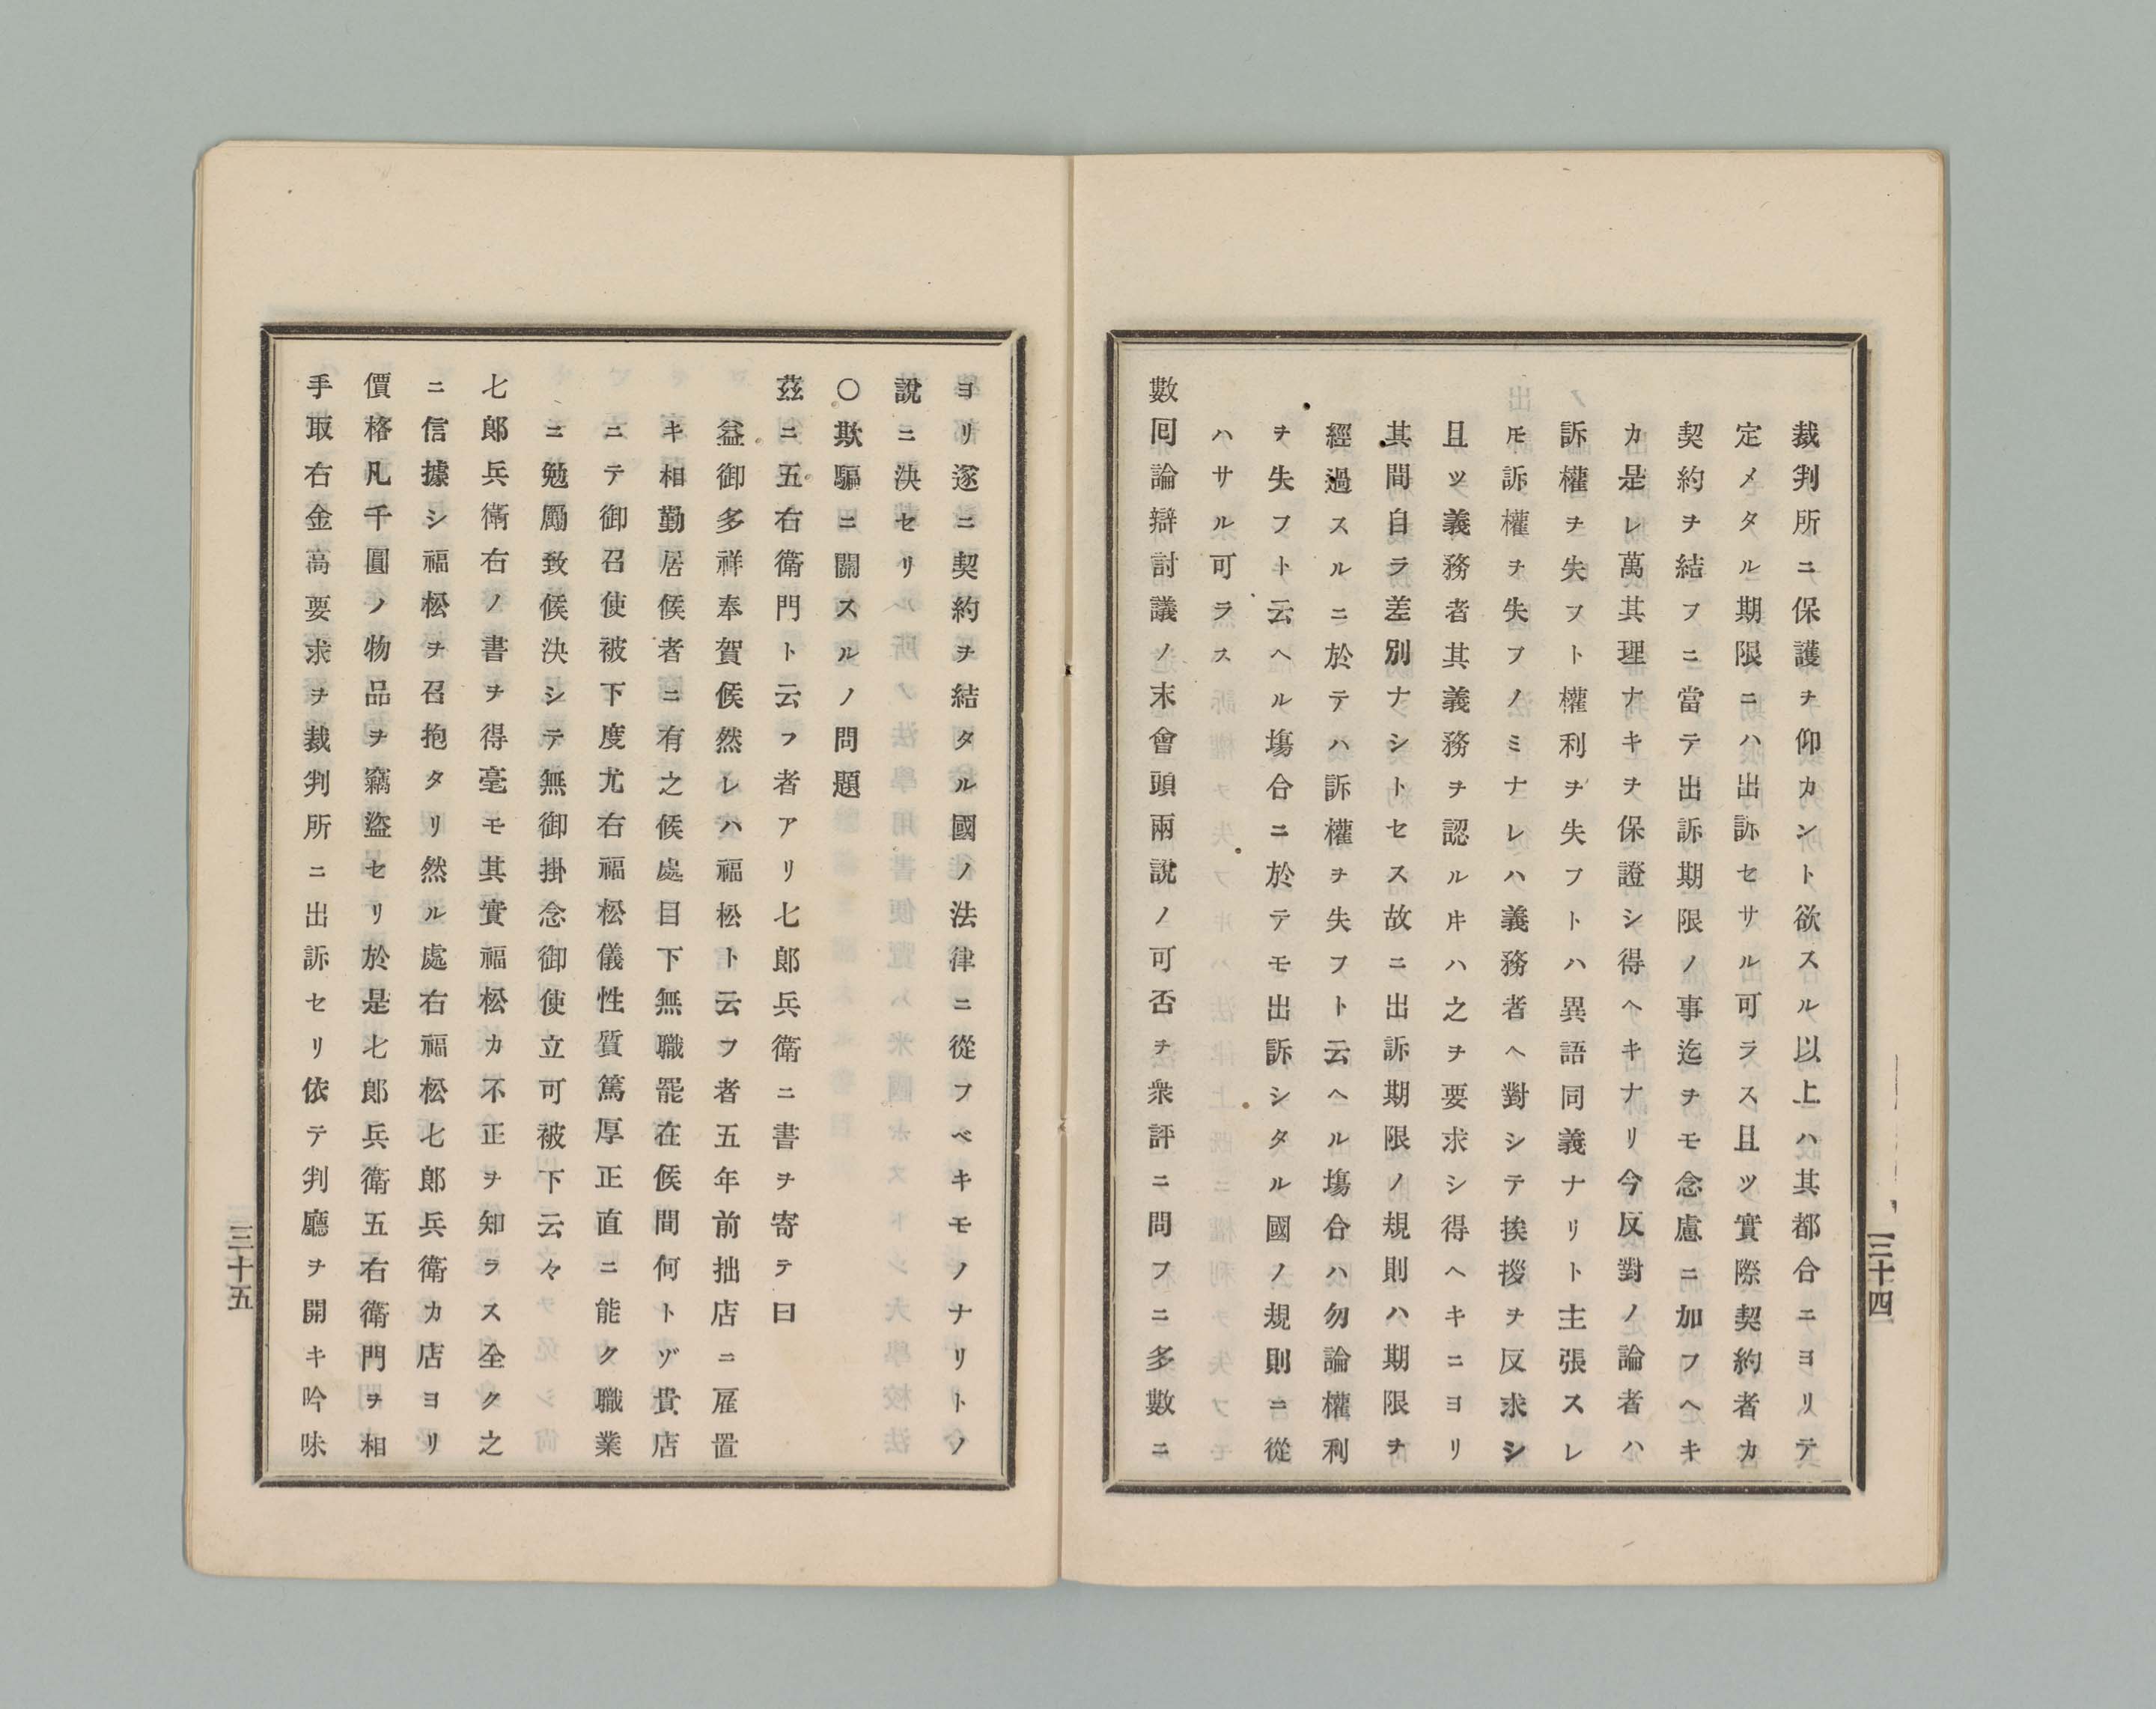 裁判所ニ保護ヲ仰カント欲スル以上ハ其都合ニヨリテ
定メタル期限ニハ出訴セサル可ラス且ツ實際契約者カ
契約ヲ結フニ當テ出訴期限ノ事迄ヲモ念慮ニ加フヘキ
カ是レ萬其理ナキヲ保證シ得ヘキナリ今反對ノ論者ハ
訴權ヲ失フト權利ヲ失フトハ異語同義ナリト主張スレ
𪜈訴權ヲ失フノミナレハ義務者ヘ對シテ挨拶ヲ反求シ
且ツ義務者其義務ヲ認ルヰハ之ヲ要求シ得ヘキニヨリ
其間自ラ差別ナシトセス故ニ出訴期限ノ規則ハ期限ヲ
經過スルニ於テハ訴權ヲ失フト云ヘル塲合ハ勿論權利
ヲ失フト云ヘル塲合ニ於テモ出訴シタル國ノ規則ニ從
ハサル可ラス
數囘論辯討議ノ末會頭兩說ノ可否ヲ衆評ニ問フニ多數ニ
三十四
ヨリ遂ニ契約ヲ結タル國ノ法律ニ從フベキモノナリトノ
說ニ決セリ
〇欺騙ニ關スルノ問題
茲ニ五右衛門ト云フ者アリ七郎兵衛ニ書ヲ寄テ曰
益御多祥奉賀候然レハ福松ト云フ者五年前拙店ニ雇置
キ相勤居候者ニ有之候處目下無職罷在候間何トゾ貴店
ニテ御召使被下度尤右福松儀性質篤厚正直ニ能ク職業
ニ勉勵致候決シテ無御掛念御使立可被下云々
七郎兵衛右ノ書ヲ得毫モ其實福松カ不正ヲ知ラス全ク之
ニ信據シ福松ヲ召抱タリ然ル處右福松七郎兵衛カ店ヨリ
價格凡千圓ノ物品ヲ竊盜セリ於是七郎兵衛五右衛門ヲ相
手取右金高要求ヲ裁判所ニ出訴セリ依テ判廳ヲ開キ吟味
三十五